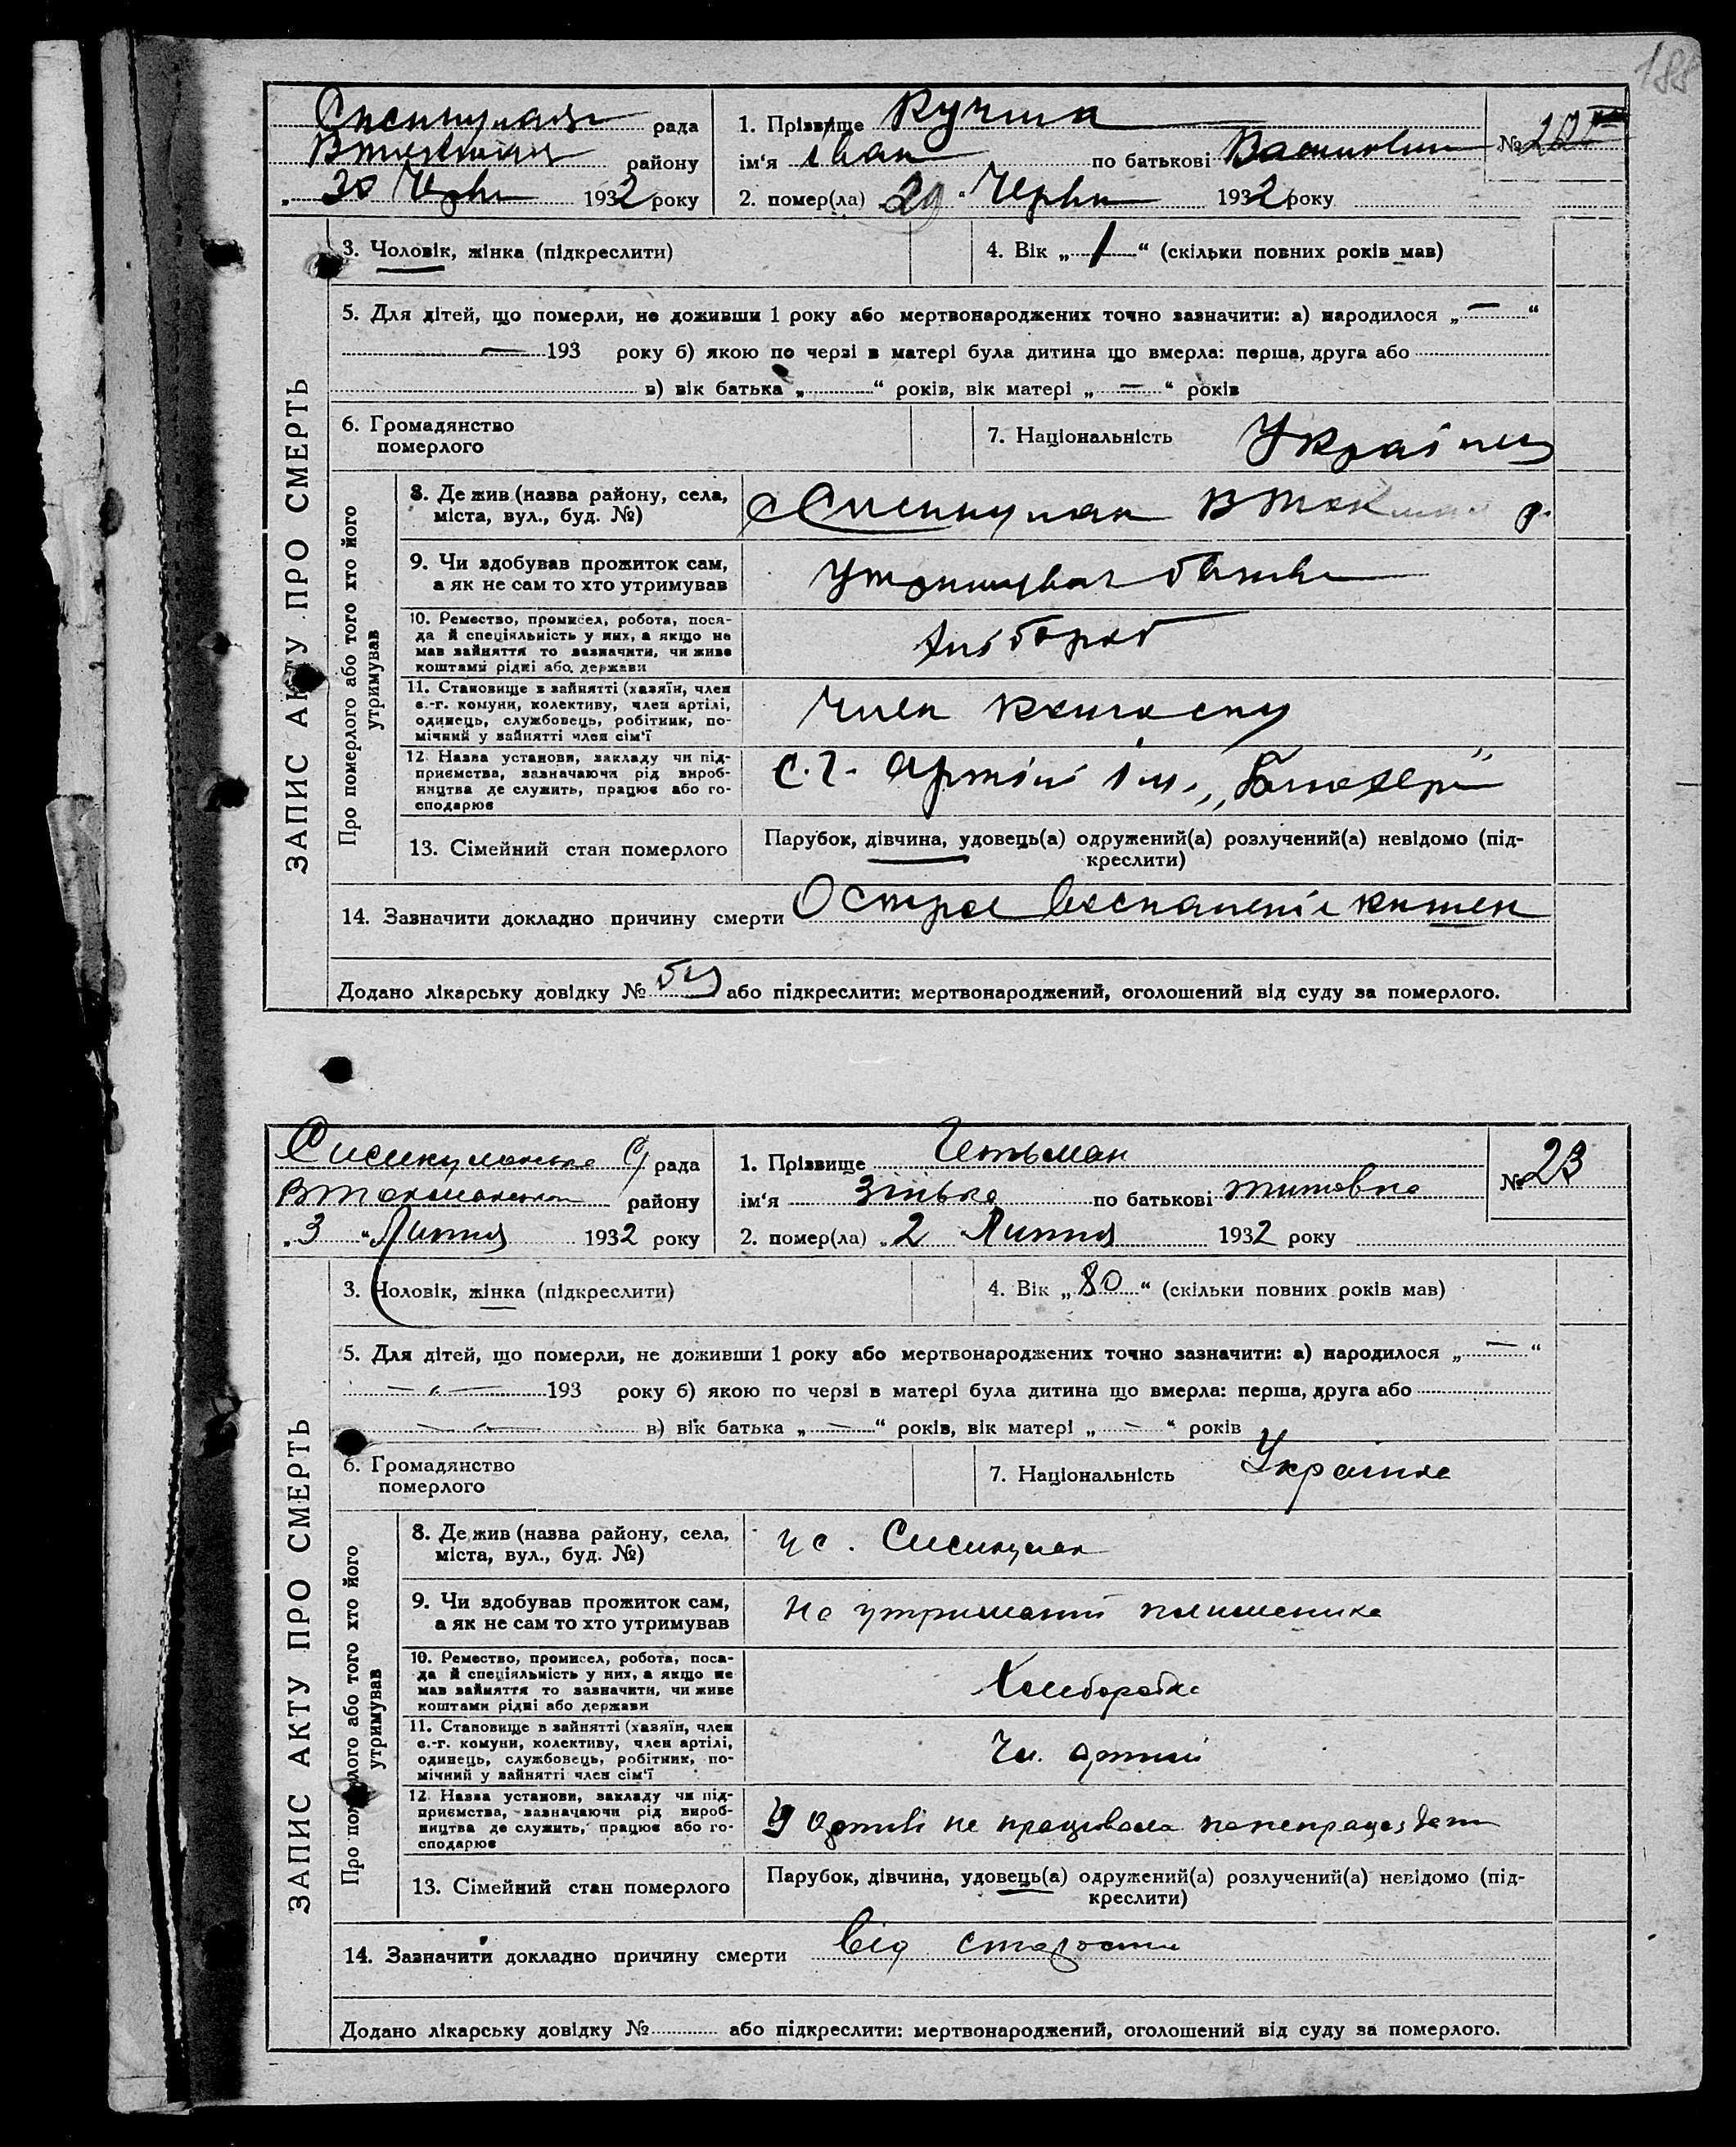 188
рада
1. Прізвище Кучма
№
району
ім'я іван по батькові Василович
30 Черв 1932 року
2. помер(ла) 29 Черв 1932 року
ЗАПИС АКТУ ПРО СМЕРТЬ
3. Чоловік, жінка (підкреслити)
4. Вік „1“ (скільки повних років мав)
5. Для дітей, що померли, не доживши 1 року або мертвонароджених точно зазначити: а) народилося „—“
— 193 року б) якою по черзі в матері була дитина що вмерла: перша, друга або
в) вік батька „ “ років, вік матері „—“ років
6. Громадянство
померлого
7. Національність Українец
Про померлого або того хто його
утримував
8. Де жив (назва району, села,
міста, вул., буд. №)
р.
9. Чи здобував прожиток сам,
а як не сам то хто утримував
Утримував батько
10. Ремество, промисел, робота, поса-
да й спеціяльність у них, а якщо не
мав зайняття то зазначити, чи живе
коштами рідні або держави
хлібороб
11. Становище в зайнятті (хазяїн, член
с.-г. комуни, колективу, член артілі,
одинець, службовець, робітник, по-
мічний у зайнятті член сім'ї
член колгоспу
12. Назва установи, закладу чи під-
приємства, зазначаючи рід вироб-
ництва де служить, працює або го-
сподарює
С.г. Артіль ім. „Блюхера“
13. Сімейний стан померлого
Парубок, дівчина, удовець(а) одружений(а) розлучений(а) невідомо (під-
креслити)
14. Зазначити докладно причину смерти Острое воспаленіе кишек
Додано лікарську довідку № або підкреслити: мертвонароджений, оголошений від суду за померлого.
рада
1. Прізвище Гетьман
№ 23
району
ім'я Зінька по батькові Титовна
„3“ Липня 1932 року
2. помер(ла) „2 Липня 1932 року
ЗАПИС АКТУ ПРО СМЕРТЬ
3. Чоловік, жінка (підкреслити)
4. Вік „80“ (скільки повних років мав)
5. Для дітей, що померли, не доживши 1 року або мертвонароджених точно зазначити: а) народилося „—“
— „ — 193 року б) якою по черзі в матері була дитина що вмерла: перша, друга або
— „ — в) вік батька „—“ років, вік матері „—“ років
6. Громадянство
померлого
7. Національність Українка
Про померлого або того хто його
утримував
8. Де жив (назва району, села,
міста, вул., буд. №)
у с.
9. Чи здобував прожиток сам,
а як не сам то хто утримував
на утриманні племеника
10. Ремество, промисел, робота, поса-
да й спеціяльність у них, а якщо не
мав зайняття то зазначити, чи живе
коштами рідні або держави
Хлеборобка
11. Становище в зайнятті (хазяїн, член
с.-г. комуни, колективу, член артілі,
одинець, службовець, робітник, по-
мічний у зайнятті член сім'ї
Чл. артілі
12. Назва установи, закладу чи під-
приємства, зазначаючи рід вироб-
ництва де служить, працює або го-
сподарює
У Артілі не працювала
13. Сімейний стан померлого
Парубок, дівчина, удовець(а) одружений(а) розлучений(а) невідомо (під-
креслити)
14. Зазначити докладно причину смерти Від старости
Додано лікарську довідку № або підкреслити: мертвонароджений, оголошений від суду за померлого.